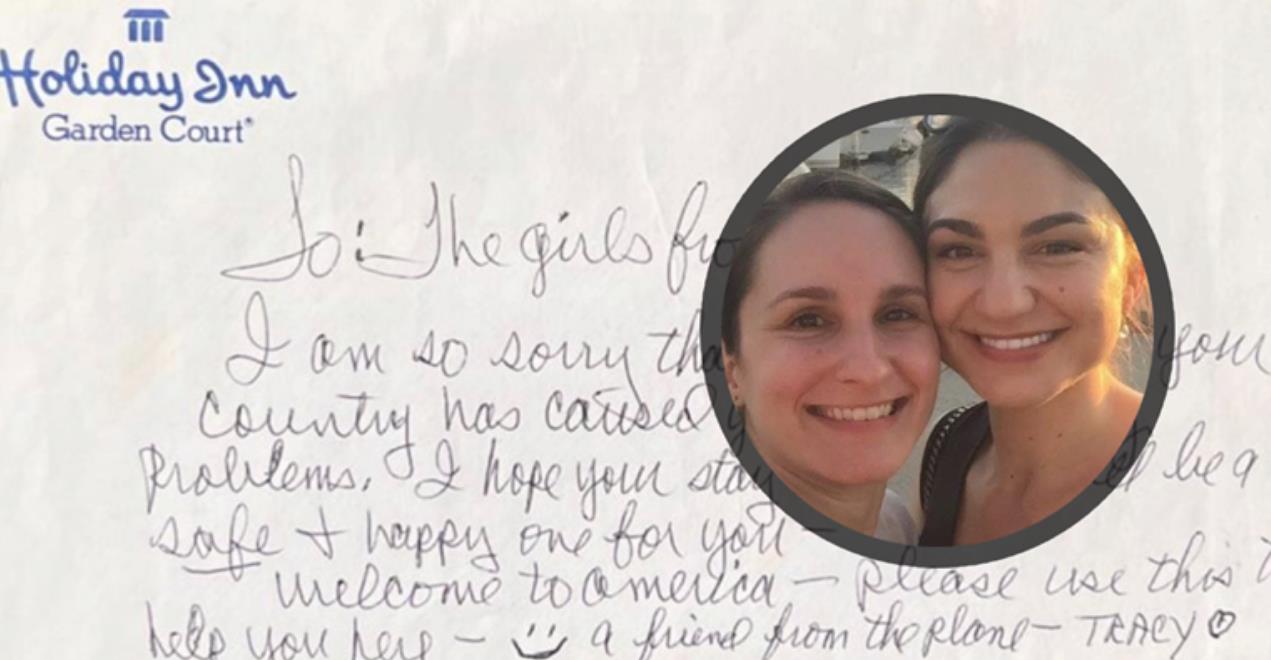 Holiday Inn
Garden Court
To: The girls
I am so sorry your
country has caused
problems. I hope your stay be a
safe + happy one for you –
Welcome to America – please use this
help you here – a friend from the plane – TRACY